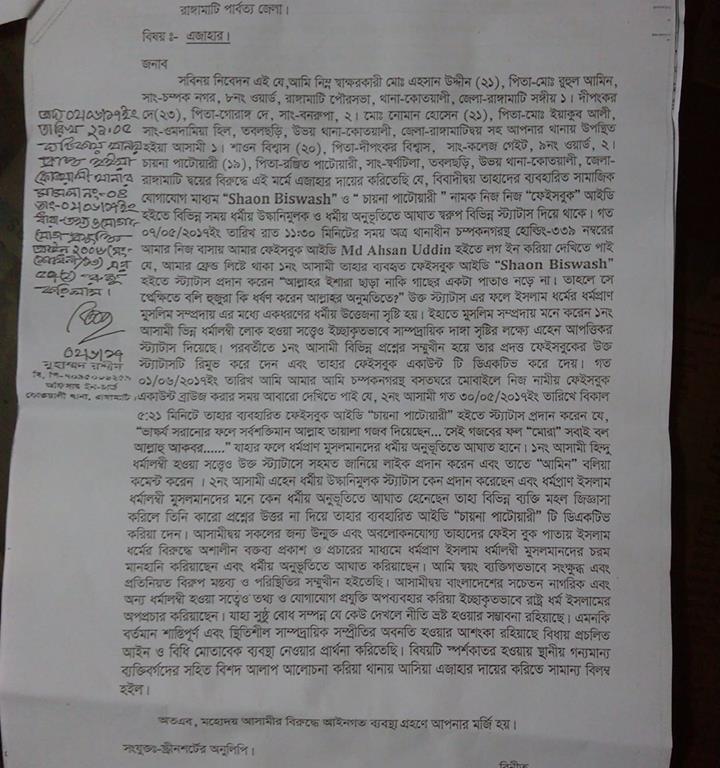 রাঙ্গামাটি পার্বত্য জেলা।
বিষয় ঃ- এজাহার।
জনাব
সবিনয় নিবেদন এই যে,আমি নিম্ন স্বাক্ষরকারী মোঃ এহসান উদ্দীন (২১), পিতা-মোঃ রুহুল আমিন,
সাং-চম্পক নগর, ৮নং ওয়ার্ড, রাঙ্গামাটি পৌরসভা, থানা-কোতয়ালী, জেলা-রাঙ্গামাটি সঙ্গীয় ১। দীপংকর
দে(২৩), পিতা-গোরাঙ্গ দে, সাং-বনরূপা, ২। মোঃ নোমান হোসেন (২১), পিতা-মোঃ ইয়াকুব আলী,
সাং-ওমদামিয়া হিল, তবলছড়ি, উভয় থানা-কোতয়ালী, জেলা-রাঙ্গামাটিদ্বয় সহ আপনার থানায় উপস্থিত
হইয়া আসামী ১। শাওন বিশ্বাস (২০) পিতা-দীপংকর বিশ্বাস, সাং-কলেজ গেইট, ৯নং ওয়ার্ড, ২।
চায়না পাটোয়ারী (১৯), পিতা-রঞ্জিত পাটোয়ারী, সাং-স্বর্ণটিলা, তবলছড়ি, উভয় থানা-কোতয়ালী, জেলা-
রাঙ্গামাটি দ্বয়ের বিরুদ্ধে এই মর্মে এজাহার দায়ের করিতেছি যে, বিবাদীদ্বয় তাহাদের ব্যবহারিত সামাজিক
যোগাযোগ মাধ্যম “Shaon Biswash” ও “ চায়না পাটোয়ারী ” নামক নিজ নিজ “ফেইসবুক” আইডি
হইতে বিভিন্ন সময় ধর্মীয় উষ্কানিমুলক ও ধর্মীয় অনুভূতিতে আঘাত স্বরুপ বিভিন্ন স্ট্যাটাস দিয়ে থাকে। গত
০৭/০৫/২০১৭ইং তারিখ রাত ১১:৩০ মিনিটের সময় অত্র থানাধীন চম্পকনগরস্থ হোল্ডিং-৩৩৯ নম্বরের
আমার নিজ বাসায় আমার ফেইসবুক আইডি Md Ahsan Uddin হইতে লগ ইন করিয়া দেখিতে পাই
যে, আমার ফ্রেন্ড লিষ্টে থাকা ১নং আসামী তাহার ব্যবহৃত ফেইসবুক আইডি “Shaon Biswash”
হইতে স্ট্যাটাস প্রদান করেন “আল্লাহর ইশারা ছাড়া নাকি গাছের একটা পাতাও নড়ে না। তাহলে সে
প্রেক্ষিতে বলি হুজুরা কি ধর্ষণ করেন আল্লাহর অনুমতিতে?” উক্ত স্ট্যাটাস এর ফলে ইসলাম ধর্মের ধর্মপ্রাণ
মুসলিম সম্প্রদায় এর মধ্যে একধরণের ধর্মীয় উত্তেজনা সৃষ্টি হয়। ইহাতে মুসলিম সম্প্রদায় মনে করেন ১নং
আসামী ভিন্ন ধর্মালম্বী লোক হওয়া সত্ত্বেও ইচ্ছাকৃতভাবে সাম্প্রদায়িক দাঙ্গা সৃষ্টির লক্ষ্যে এহেন আপত্তিকর
স্ট্যাটাস দিয়েছে। পরবর্তীতে ১নং আসামী বিভিন্ন প্রশ্নের সম্মুখীন হয়ে তার প্রদত্ত ফেইসবুকের উক্ত
স্ট্যাটাসটি রিমুভ করে দেন এবং তাহার ফেইসবুক একাউন্ট টি ডিএকটিভ করে দেয়। গত
০১/০৬/২০১৭ইং তারিখ আমি আমার আমি চম্পকনগরস্থ বসতঘরে মোবাইলে নিজ নামীয় ফেইসবুক
একাউন্ট ব্রাউজ করার সময় আবারো দেখিতে পাই যে, ২নং আসামী গত ৩০/০৫/২০১৭ইং তারিখে বিকাল
৫:২১ মিনিটে তাহার ব্যবহারিত ফেইসবুক আইডি “চায়না পাটোয়ারী” হইতে স্ট্যাটাস প্রদান করেন যে,
“ভাষ্কর্য সরানোর ফলে সর্বশক্তিমান আল্লাহ তায়ালা গজব দিয়েছেন... সেই গজবের ফল “মোরা” সবাই বল
আল্লাহু আকবর......” যাহার ফলে ধর্মপ্রাণ মুসলমানদের ধর্মীয় অনুভূতিতে আঘাত হানে। ১নং আসামী হিন্দু
ধর্মালম্বী হওয়া সত্ত্বেও উক্ত স্ট্যাটাসে সহমত জানিয়ে লাইক প্রদান করেন এবং তাতে “আমিন” বলিয়া
কমেন্ট করেন । ২নং আসামী এহেন ধর্মীয় উষ্কানিমুলক স্ট্যাটাস কেন প্রদান করেছেন এবং ধর্মপ্রাণ ইসলাম
ধর্মালম্বী মুসলমানদের মনে কেন ধর্মীয় অনুভূতিতে আঘাত হেনেছেন তাহা বিভিন্ন ব্যক্তি মহল জিজ্ঞাসা
করিলে তিনি কারো প্রশ্নের উত্তর না দিয়ে তাহার ব্যবহারিত আইডি “চায়না পাটোয়ারী” টি ডিএকটিভ
করিয়া দেন। আসামীদ্বয় সকলের জন্য উন্মুক্ত এবং অবলোকনযোগ্য তাহাদের ফেইস বুক পাতায় ইসলাম
ধর্মের বিরুদ্ধে অশালীন বক্তব্য প্রকাশ ও প্রচারের মাধ্যমে ধর্মপ্রাণ ইসলাম ধর্মালম্বী মুসলমানদের চরম
মানহানি করিয়াছেন এবং ধর্মীয় অনুভূতিতে আঘাত করিয়াছেন। আমি স্বয়ং ব্যক্তিগতভাবে সংক্ষুদ্ধ এবং
প্রতিনিয়ত বিরুপ মন্তব্য ও পরিস্থিতির সম্মুখীন হইতেছি। আসামীদ্বয় বাংলাদেশের সচেতন নাগরিক এবং
অন্য ধর্মালম্বী হওয়া সত্ত্বেও তথ্য ও যোগাযোগ প্রযুক্তি অপব্যবহার করিয়া ইচ্ছাকৃতভাবে রাষ্ট্র ধর্ম ইসলামের
অপপ্রচার করিয়াছেন। যাহা সুষ্ঠু বোধ সম্পন্ন যে কেউ দেখলে নীতি ভ্রষ্ট হওয়ার সম্ভাবনা রহিয়াছে। এমনকি
বর্তমান শান্তিপূর্ণ এবং স্থিতিশীল সাম্পদ্রায়িক সম্প্রীতির অবনতি হওয়ার আশংকা রহিয়াছে বিধায় প্রচলিত
আইন ও বিধি মোতাবেক ব্যবস্থা নেওয়ার প্রার্থনা করিতেছি। বিষয়টি স্পর্শকাতর হওয়ায় স্থানীয় গন্যমান্য
ব্যক্তিবর্গদের সহিত বিশদ আলাপ আলোচনা করিয়া থানায় আসিয়া এজাহার দায়ের করিতে সামান্য বিলম্ব
হইল।
অতএব, মহোদয় আসামীর বিরুদ্ধে আইনগত ব্যবস্থা গ্রহণে আপনার মর্জি হয়।
সংযুক্তঃ-স্ক্রীনশর্টের অনুলিপি।
বিনীত
অদ্য ০২/০৬/১৭ইং
তারিখ ২১:০৫
মামলা নং-০৪
০২/৬/১৭
মুহাম্মদ রশীদ
অফিসার ইন-চার্জ
কোতয়ালী থানা, রাঙ্গামাটি।